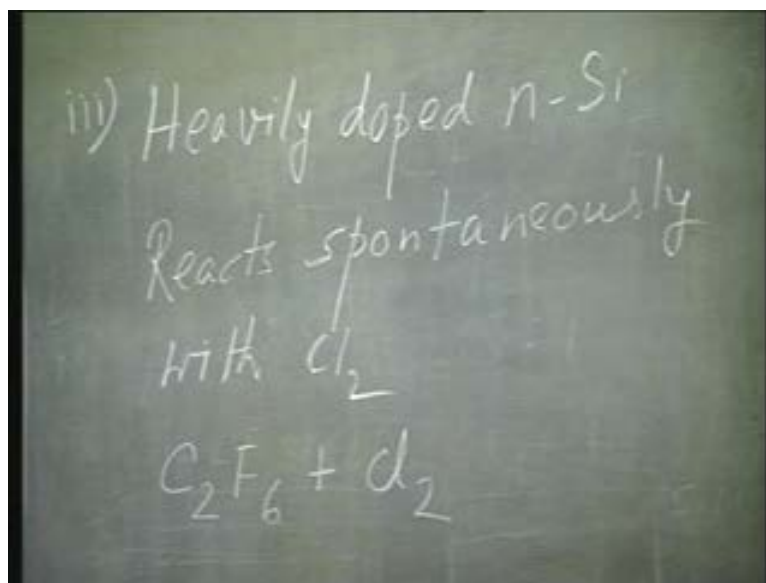 iii) Heavily doped n-Si
Reacts spontaneously
with Cl₂
C₂F₆ + Cl₂